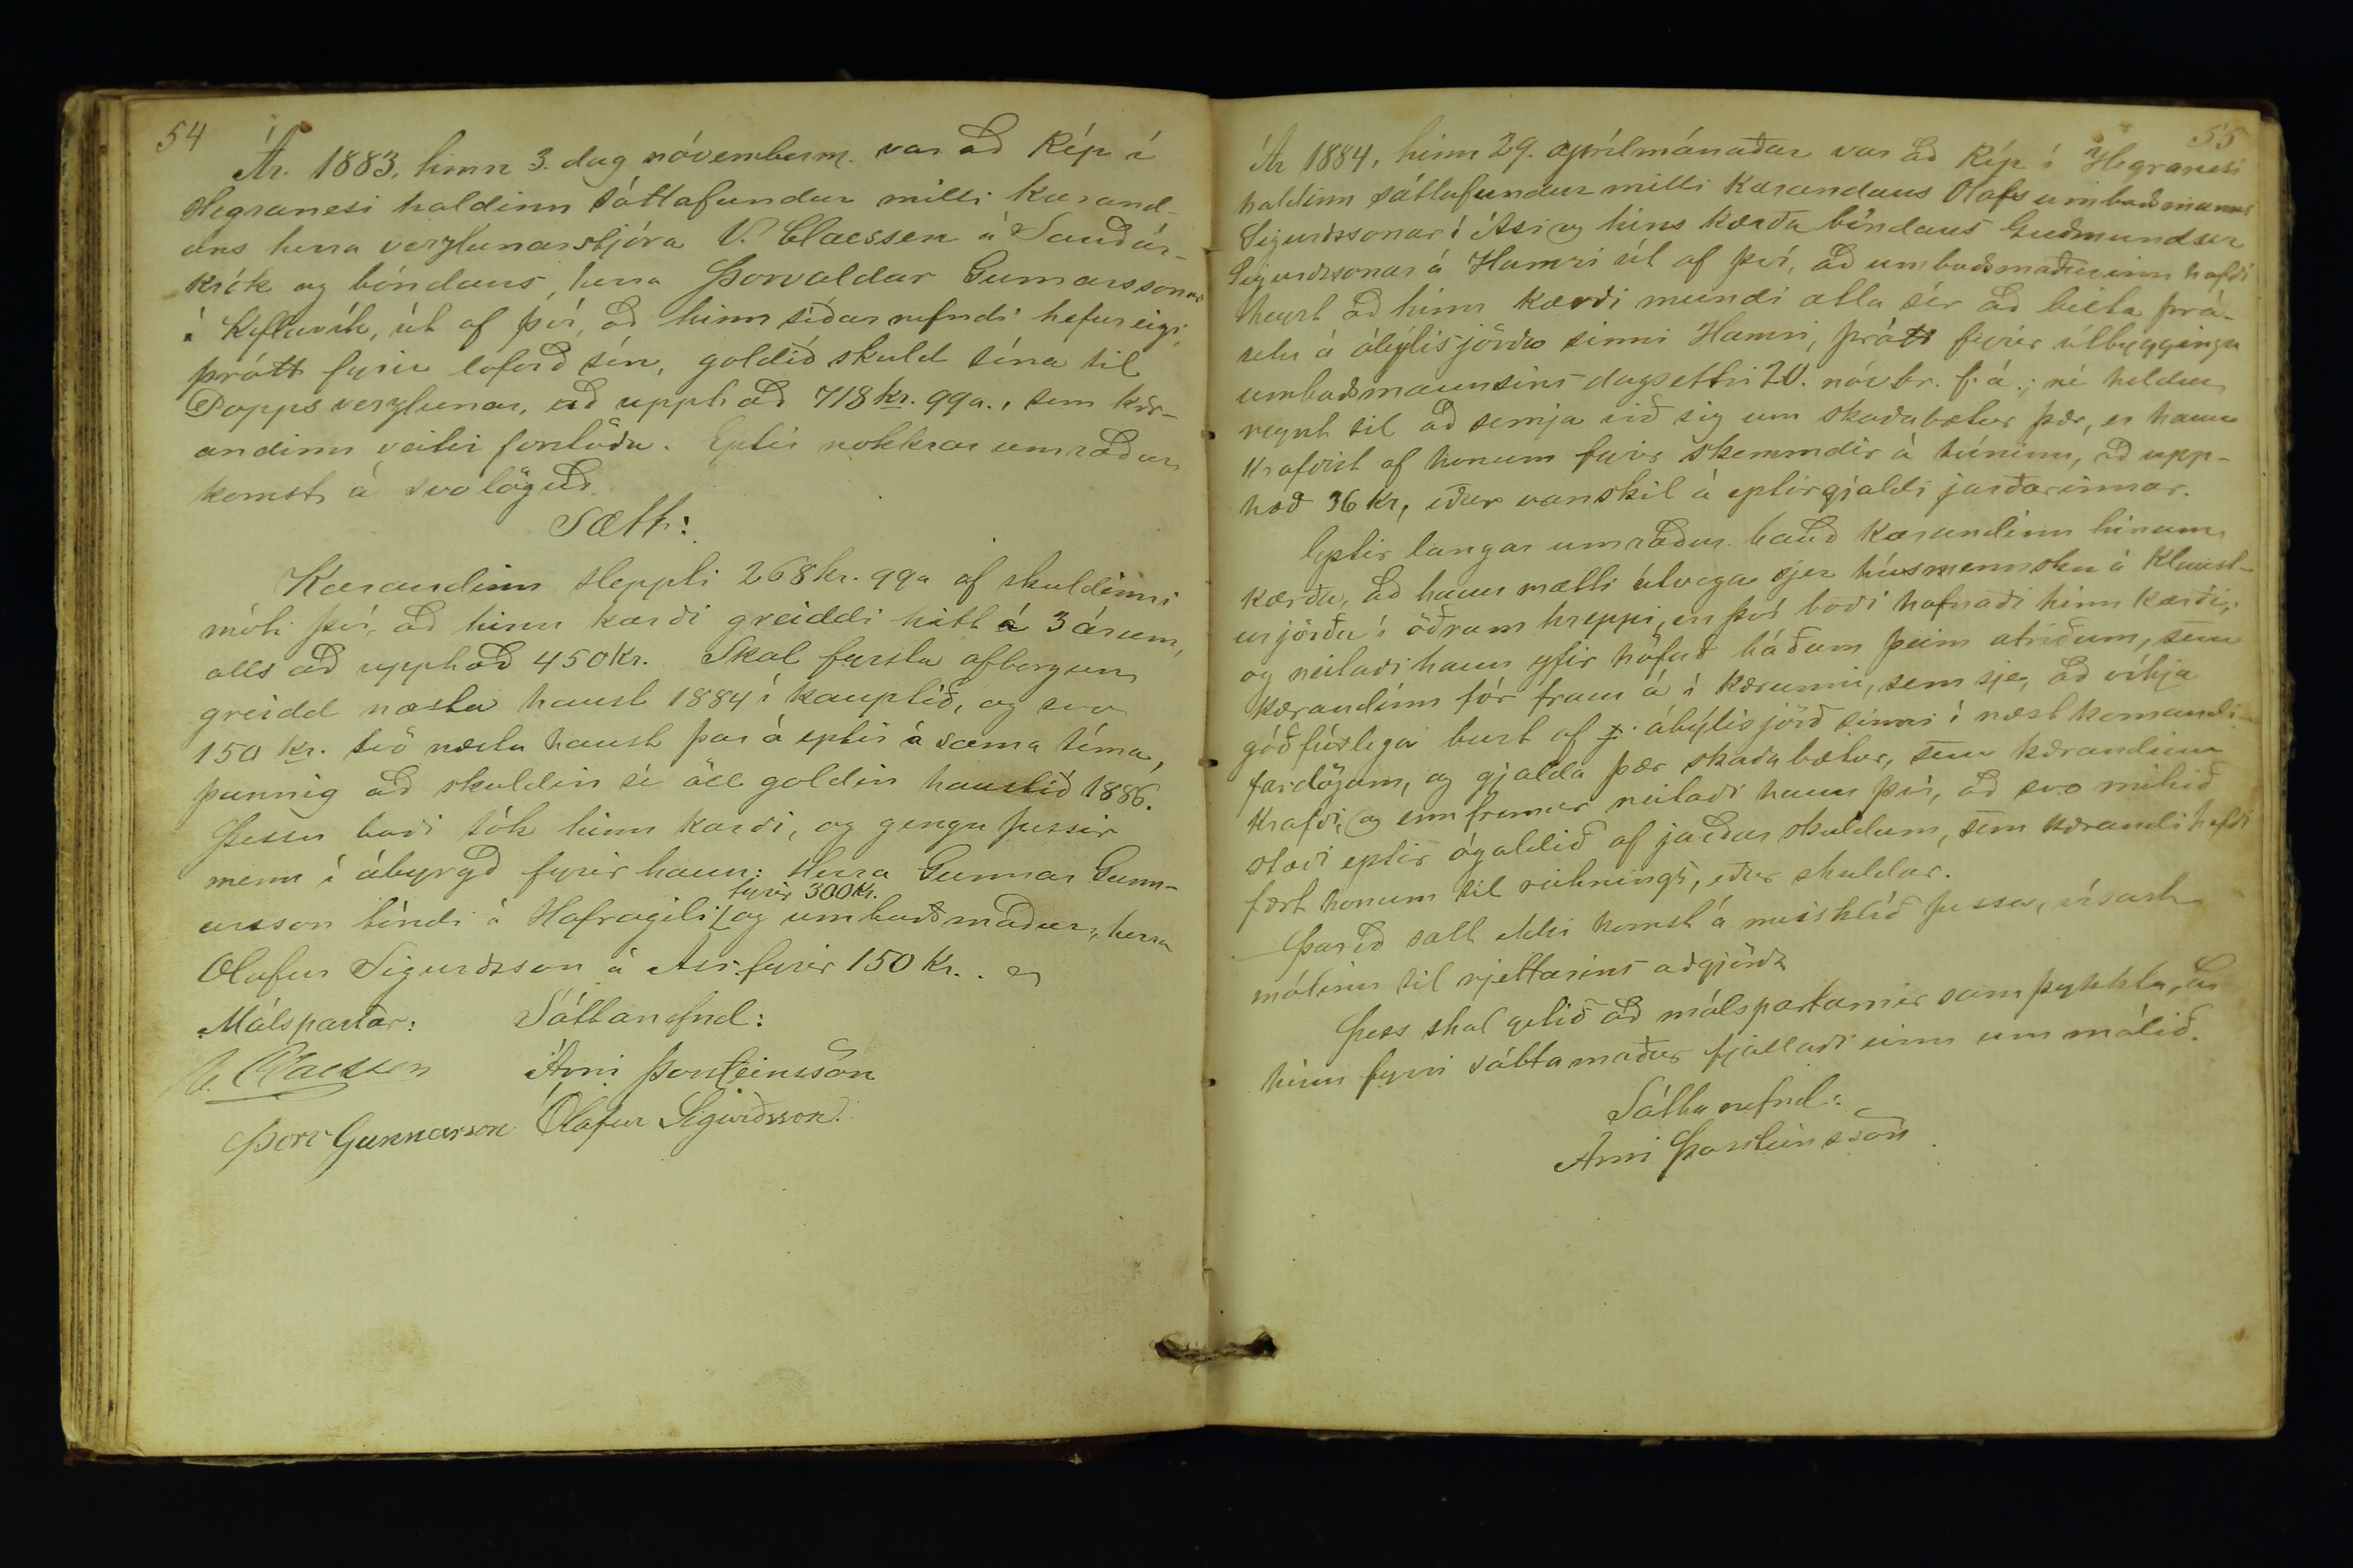 54
Ár 1883, hinn 3. dag nóvemberm. var að Ríp í
Hegranesi haldinn sáttafundur milli kærand-
ans herra verzlunarstjóra V. Claessen á Sauðár-
krók og bóndans, herra Þorvaldar Gunnarssonar
í Keflavík, út af því, að hinn síðarnefndi hefur eigi,
þrátt fyrir loforð sín, goldið skuld sína til
Popps verzlunar, að upphæð 718 kr. 99a., sem kær-
andinn veitir forstöðu. Eptir nokkrar umræður
komst á svo löguð
Sætt:
Kærandinn sleppti 268 kr. 99a af skuldinni
móti því, að hinn kærði greiddi hitt á 3 árum,
alls að upphæð 450 Kr. Skal fyrsta afborgun
greidd næsta haust 1884 í kauptíð, og svo
150 kr. tvö næstu haust þar á eptir á sama tíma,
þannig að skuldin sé öll goldin haustið 1886.
Þessu boði tók hinn kærði, og gengu þessir
menn í ábyrgð fyrir hann: Herra Gunnar Gunn-
fyrir 300 Kr.
arsson bóndi á Hafragili og umboðsmaður, herra
Olafur Sigurðsson á Ási fyrir 150 Kr.
Málspartar: Sáttanefnd:
V. Claessen Árni Þorsteinsson
Þorv Gunnarson Ólafur Sigurðsson.
55
Ár 1884, hinn 29. aprílmánaðar var að Ríp í Hegranesi
haldinn sáttafundur milli kærandans Olafs umboðsmanns
Sigurðssonar í Ási og hins kærða bóndans Guðmundar
Sigurðssonar á Hamri út af því, að umboðsmaðurinn hafði
heyrt að hinn kærði mundi ætla sér að beita þrá-
setu á ábýlisjörðu sinni Hamri, þrátt fyrir útbyggingu
umboðsmannsins dagsettri 20. nóvbr. f. á.; né heldur
reynt til að semja við sig um skaðabætur þær, er hann
krafðist af honum fyrir skemmdir á túninu, að upp-
hæð 36 Kr, eður vanskil á eptirgjaldi jarðarinnar.
Eptir langar umræður bauð kærandinn hinum
kærða, að hann mætti útvega sjer húsmennsku á Klaust-
urjörðu í öðrum hreppi, en því boði hafnaði hinn kærði,
og neitaði hann yfir höfuð báðum þeim atriðum, sem
kærandinn fór fram á í kærunni, sem sje, að víkja
góðfúslega burt af ábýlisjörð sinni í næstkomandi
fardögum, og gjalda þær skaðabætur, sem kærandinn
krafði, og enn fremur neitaði hann því, að svo mikið
stæði eptir ógoldið af jarðarskuldum, sem kærandi hafði
fært honum til reiknings, eður skuldar.
Þareð sátt ekki komst á misklíð þessa, vísast
málinu til rjettarins aðgjörða
Þess skal getið að málspartarnir samþykktu, að
hinn fyrri sáttamaður fjallaði einn um málið.
Sáttanefnd:
Árni Þorsteinsson